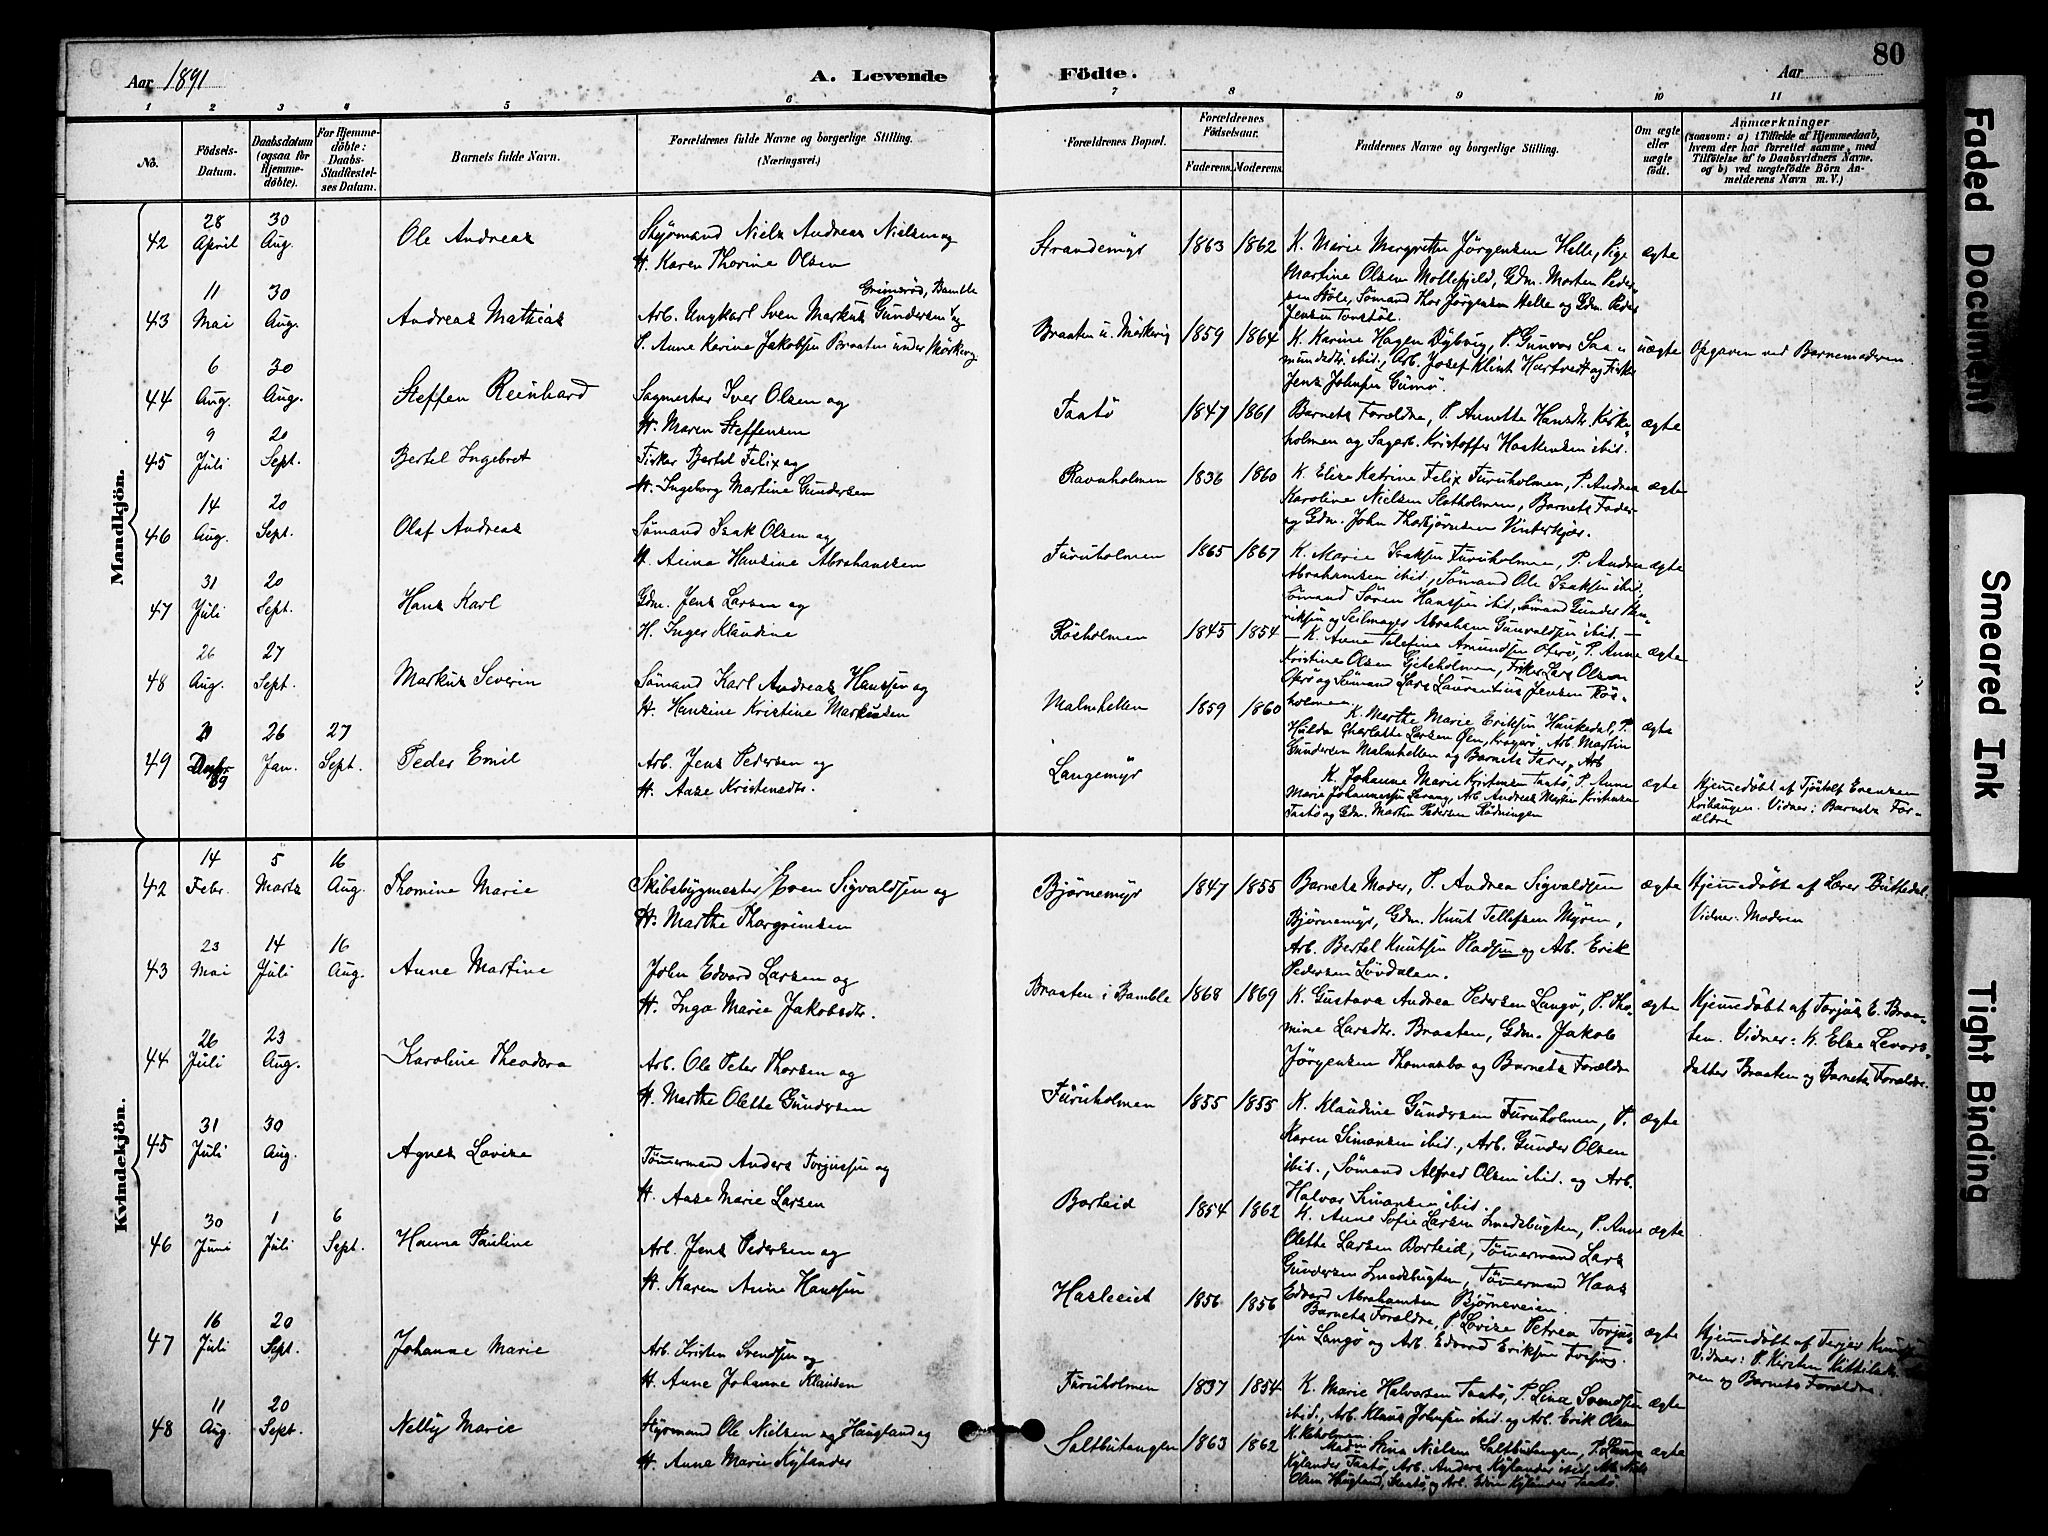 80
Aar 1891
A. Levende Födte.
Aar
1 2 3 4 5 6 7 8 9 10 11
No.
Födsels-Datum.
Daabsdatum (ogsaa for Hjemme-döbte).
For Hjemme-döbte: Daabs-Stadfæstel-ses Datum.
Barnets fulde Navn.
Forældrenes fulde Navne og borgerlige Stilling. (Næringsvei.)
Forældrenes Bopæl.
Forældrenes Födselsaar.
Faderens. Moderens.
Faddernes Navne og borgerlige Stilling.
Om ægte eller uægte födt.
Anmærkninger
(saasom: a) i Tilfælde af Hjemmedaab, hvem der har forrettet samme, med Tilföielse af to Daabsvidners Navne. og b) ved uægtefödte Börn An-melderens Navn m. V.)
Mandkjön.
42 28 April 30 Aug. Ole Andreas
Styrmand Niels Andreas Nielsen og
H. Karen Thorine Olsen
Strandemyr 1863 1862
K. Marie Margrethe Jørgensen Helle, Pige
Martine Olsen Mollefjeld, Gdm. Morten Peder-
sen Støle, Sømand Jørgensen Helle og Gdm. Peder
Jensen
ægte
43 11 Mai 30 Aug. Andreas Mathias
Grimerød, Bamble
Arb. Ungkarl Sven Markus Gundersen og
P. Anne Karine Jakobsen Braaten under Mörkevig
Braaten u. Mörkevig 1859 1864
K. Karine Hagen Dybvig, P. Gunvor Saa-
mundsdtr. ibid., Arb. Josef Klint Hartvedt og Fisker
Jens Johnsen Gumö.
uægte
Opgaven ved Barnemoderen
44 6 Aug. 30 Aug. Steffen Reinhard
Sagmester Iver Olsen og
H. Maren Steffensen
Taatö 1847 1861
Barnets Forældre, P. Annette Hansdtr. Kirke-
holmen og Sagarb. Kristoffer Haakensen ibid.
ægte
45 9 Juli 20 Sept. Bertel Ingebret
Fisker Bertel Felix og
H. Ingeborg Martine Gundersen
Ravnholmen 1836 1860
K. Elise Katrine Felix Furuholmen, P. Andrea
Karoline Nielsen Slotholmen, Barnets Fader
og Gdm. John Thorbjørnsen Vinterkjær.
ægte
46 14 Aug. 20 Sept. Olaf Andreas
Sømand Isak Olsen og
H. Anna Hansine Abrahamsen
Furuholmen 1865 1867
K. Marie Isaksen Furuholmen, P. Andrea
Abrahamsen ibid., Sømand Ole Isaksen ibid.,
Sømand Søren Hanssen ibid., Sømand Gunder
og Seilmager Abraham Gunvaldsen ibid.
ægte
47 31 Juli 20 Sept. Hans Karl
Gdm. Jens Larsen og
H. Inger Klaudine
Röiholmen 1845 1854
K. Anne Amundsen P. Anne
Kristine Olsen Gjeteholmen, Fisker Lars Olsen
og Sømand Lars Laurentius Jensen Röi-
holmen
ægte
48 26 Aug. 27 Sept. Markus Severin
Sømand Karl Andreas Hanssen og
H. Hansine Kristine Markussen
Malmhellen 1859 1860
K. Marthe Marie Eriksen Haukedal, P.
Hulda Charlotte Larsen Øen, Kragerö, Arb. Martin
Gundersen Malmhellen og Barnets Fader, Arb
ægte
49 89 26 Jan. 27 Sept. Peder Emil
Arb. Jens Pedersen og
H. Aase Kristensdtr.
Langemyr
K. Johanne Marie Kristensen Taatö, P. Anne
Marie Johannessen Arb. Andreas Martin Kristensen
Taatö og Gdm. Martin Pedersen Rödningen
ægte
Hjemmedöbt af Tjöstolf Evensen
Vidner: Barnets For-
ældre
Kvindekjön.
42 14 Febr. 5 Marts 16 Aug. Thomine Marie
Skibsbygmester Even Sigvaldsen og
H. Marthe Thorgrimsen
Bjørnemyr 1847 1855
Barnets Moder, P. Andrea Sigvaldsen
Bjørnemyr, Gdm. Knut Tellefsen Myren,
Arb. Bertel Knutsen Pladsen og Arb. Erik
Pedersen Lövdalen.
ægte
Hjemmedöbt af Lærer
Vidner: Moderen
43 23 Mai 14 Juli 16 Aug. Anne Martine
John Edvard Larsen og
H. Inga Marie Jakobsdtr.
Braaten i Bamble 1868 1869
K. Gustava Andrea Pedersen Langö, P. Tho-
mine Larsdtr. Braaten, Gdm. Jakob
Jørgensen Thomasbo og Barnets Forældre
ægte
Hjemmedöbt af Torjus E. Braa-
ten. Vidner: K. Else Levors-
datter Braaten og Barnets Forældre.
44 26 Juli 23 Aug. Karoline Theodora
Arb. Ole Peter Thorsen og
H. Marthe Olette Gundersen
Furuholmen 1855 1855
K. Klaudine Gundersen Furuholmen, P.
Karen Simonsen ibid., Arb. Gunder Olsen
ibid., Sømand Alfred Olsen ibid. og Arb.
Halvor Simonsen ibid.
ægte
45 31 Juli 30 Aug. Agnes Lovise
Tømmermand Anders Torjussen og
H. Aase Marie Larsen
Borteid 1854 1862
K. Anne Sofie Larsen Smedsbugten, P. Anne
Olette Larsen Borteid, Tømmermand Lars
Gundersen Smedsbugten, Tømmermand Hans
Edvard Abrahamsen Bjørneveien.
ægte
46 30 Juni 1 Juli 6 Sept. Hanna Pauline
Arb. Jens Pedersen og
H. Karen Anne Hanssen
Hasleviet 1856 1856
Barnets Forældre, P. Lovise Petrea Torjus-
sen Langö og Arb. Edvard Eriksen
ægte
Hjemmedöbt af Terjer
Vidner: P. Kirsten Kittels
og Barnets Forældre.
47 16 Juli 20 Sept. Johanne Marie
Arb. Kristen Svendsen og
H. Anne Johanne Klausen
Furuholmen 1837 1854
K. Marie Halvorsen Taatö, P. Lina Svendsen
ibid., Arb. Klaus Johnsen ibid. og Arb. Erik Olsen
ægte
48 11 Aug. 20 Sept. Nelly Marie
Styrmand Ole Nielsen Haugland og
H. Anna Marie Kylander
Saltbutangen 1863 1862
Madm. Stina Nielsen Saltbutangen, P. Laura
Kylander Taatö, Arb. Anders Kylander ibid., Arb. Niels
Olsen Haugland, Skaatö og Arb. Edvin Kylander Taatö.
ægte
Faded Document
Smeared Ink
Tight Binding